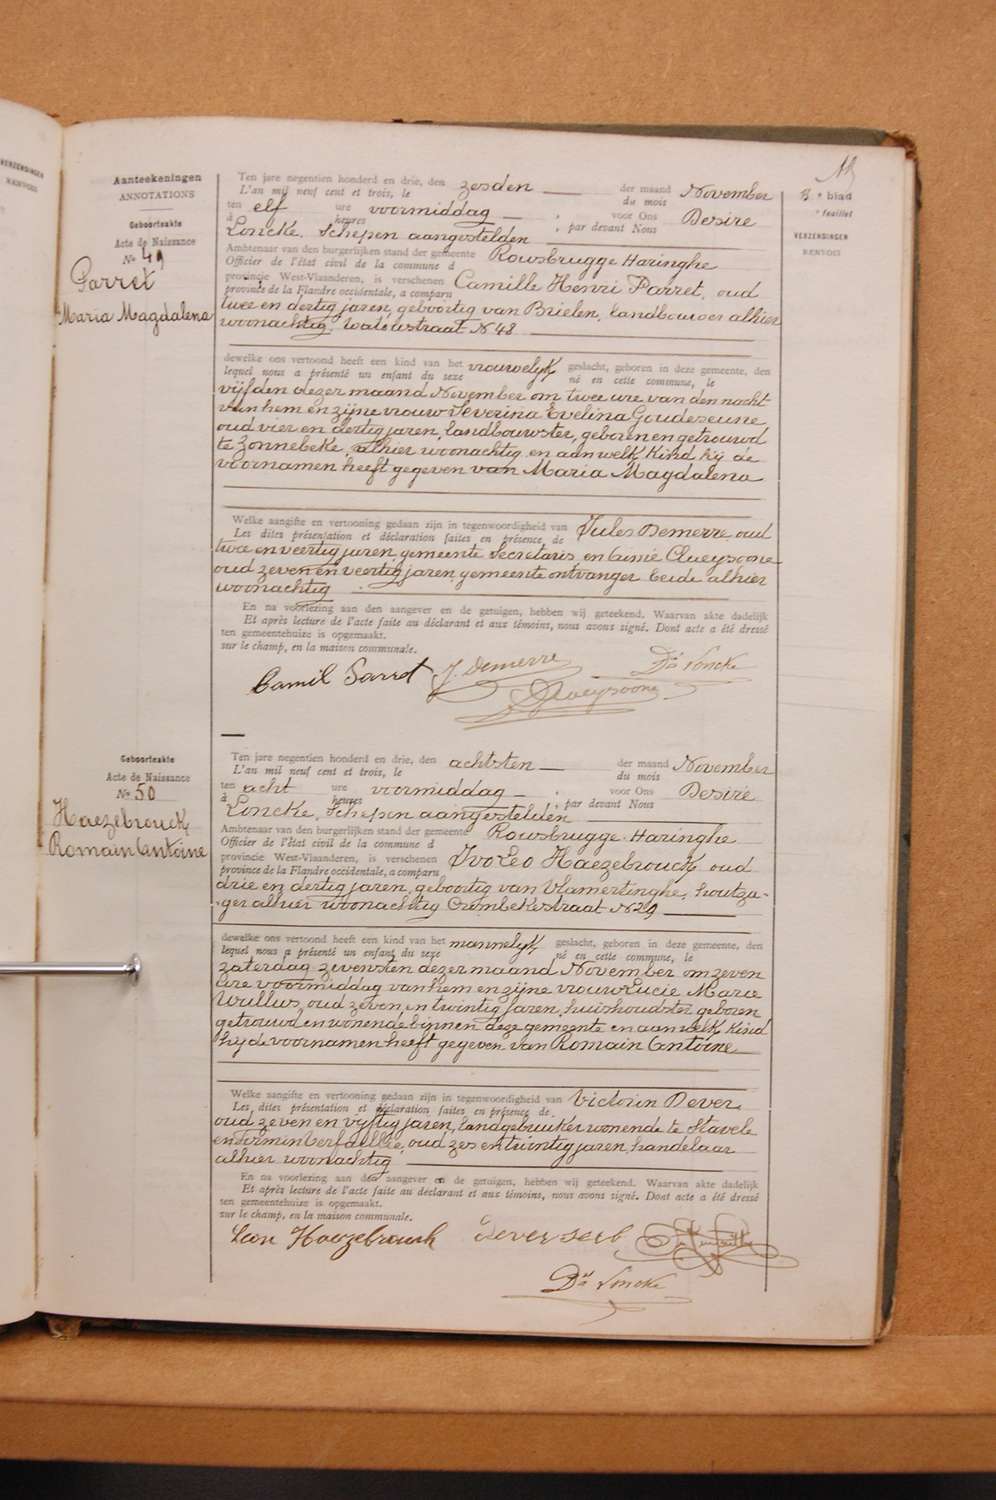 VERZENDINGEN
RENVOIS
Aanteekeningen
ANNOTATIONS
Geboorteakte
Acte de Naissance
No 49
Parret
Maria Magdalena
Ten jare negentien honderd en drie, den zesden der maand November
L'an mil neuf cent et trois, le du mois
ten elf ure voormiddag voor Ons Desire
à heures , par devant Nous
Loncke, Schepen aangestelden
Ambtenaar van den burgerlijken stand der gemeente Rousbrugge Haringhe
Officier de l'état civil de la commune d
provincie West-Vlaanderen, is verschenen Camille Henri Parret, oud
province de la Flandre occidentale, a comparu
twee en dertig jaren, geboortig van Brielen, landbouwer alhier
woonachtig, Watoustraat N 48
dewelke ons vertoond heeft een kind van het vrouwelijk geslacht, geboren in deze gemeente, den
lequel nous a présenté un enfant du sexe né en cette commune, le
vijfden dezer maand November om twee ure van den nacht
van hem en zijne vrouw Severina Evelina Goudeseune
oud vier en dertig jaren, landbouwster, geboren en getrouwd
te Zonnebeke, alhier woonachtig en aan welk kind hij de
voornamen heeft gegeven van Maria Magdalena
Welke aangifte en vertooning gedaan zijn in tegenwoordigheid van Jules Demerre oud
Les dites présentation et déclaration faites en présence de
twee en veertig jaren, gemeente secretaris, en Cueysoone
oud zeven en veertig jaren, gemeente ontvanger beide alhier
woonachtig
En na voorlezing aan den aangever en de getuigen, hebben wij geteekend. Waarvan akte dadelijk
Et après lecture de l'acte faite au déclarant et aux témoins, nous avons signé. Dont acte a été dressé
ten gemeentehuize is opgemaakt.
sur le champ, en la maison communale.
Camil Parret J. Demerre Dé Loncke
Cueysoone
Geboorteakte
Acte de Naissance
No 50
Haezebrouck
Romain Antoine
Ten jare negentien honderd en drie, den achtsten der maand November
L'an mil neuf cent et trois, le du mois
ten acht ure voormiddag voor Ons Desire
à heures , par devant Nous
Loncke, Schepen aangestelden
Ambtenaar van den burgerlijken stand der gemeente Rousbrugge-Haringhe
Officier de l'état civil de la commune d
provincie West-Vlaanderen, is verschenen Ivo Leo Haezebrouck, oud
province de la Flandre occidentale, a comparu
drie en dertig jaren, geboortig van Vlamertinghe, houtza-
ger alhier woonachtig Crombekestraat N 29
dewelke ons vertoond heeft een kind van het mannelijk geslacht, geboren in deze gemeente, den
lequel nous a présenté un enfant du sexe né en cette commune, le
zaterdag zevensten dezer maand November om zeven
ure voormiddag van hem en zijne vrouw Lucie Marie
Wullus, oud zeven en twintig jaren, huishoudster geboren
getrouwd en wonende binnen deze gemeente en aan welk kind
hij de voornamen heeft gegeven van Romain Antoine
Welke aangifte en vertooning gedaan zijn in tegenwoordigheid van Victorin Dever
Les dites présentation et déclaration faites en présence de
oud zeven en vijftig jaren, landgebruiker wonende te Stavele
en Firmin Verfaillie, oud zes en twintig jaren, handelaar
alhier woonachtig
En na voorlezing aan den aangever en de getuigen, hebben wij geteekend. Waarvan akte dadelijk
Et après lecture de l'acte faite au déclarant et aux témoins, nous avons signé. Dont acte a été dressé
ten gemeentehuize is opgemaakt.
sur le champ, en la maison communale.
Leon Haezebrouck
Dé Loncke
blad
feuillet
VERZENDINGEN
RENVOIS